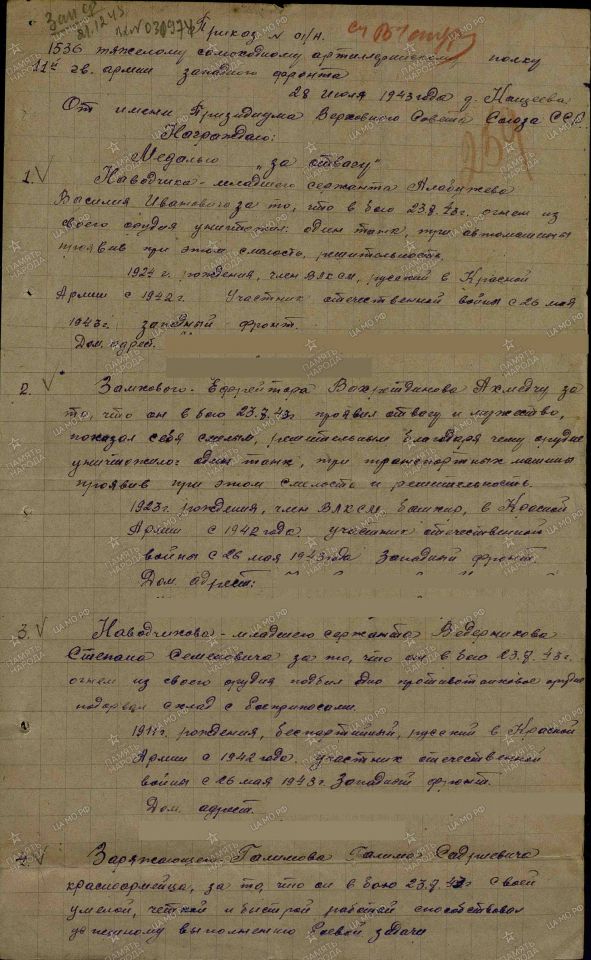 31.12.43
Приказ N 01/н.
1536 тяжелому самоходному артиллерийском полку
11й гв. армии западного фронта
28 июля 1943 года д. Кащеева
От имени Призидиума Верховного Совета Союза ССР
Награждаю:
Медалью "за отвагу"
1. Наводчика - младшего сержанта Алабужева
Василия Ивановича за то, что в бою 23.7.43г. огнем из
своего орудия уничтожил: один танк, три автомашины
проявив при этом смелость, решительность.
1924 г. рождения, член ВЛКСМ, русский в Красной
Армии с 1942 г. Участник отечественной войны с 26 мая
1943г. западный фронт.
Дом. адрес.
2. Замкового - Ефрейтора Вахретдинова Ахмедчу за
то, что он в бою 23.7.43г проявил отвагу и мужество,
показал себя смелым, решительным благодаря чему орудие
уничтожило: один танк, три транспортных машины
проявив при этом смелость и решительность.
1923г. рождения, член ВЛКСМ башкир, в Красной
Армии с 1942 года участник отечественной
войны с 26 мая 1943 года Западный фронт.
Дом. адрес:
3. Наводчикова - младшего сержанта Ведерникова
Степана Семеновича за то, что он в бою 23.7.43г.
огнем из своего орудия подбил одно противотанковое орудие
подорвал склад с боеприпасами.
1911г. рождения, беспартийный, русский в Красной
Армии с 1942 года, участник отечественной
войны с 26 мая 1943г. Западный фронт.
Дом. адрес.
4. Заряжающего - Галимова Галимо Садриевича
красноармейца, за то, что он в бою 23.7.43г своей
умелой, четкой и быстрой работой способствовал
успешному выполнению боевой задачи
ПАМЯТЬ НАРОДА
ЦА МО РФ